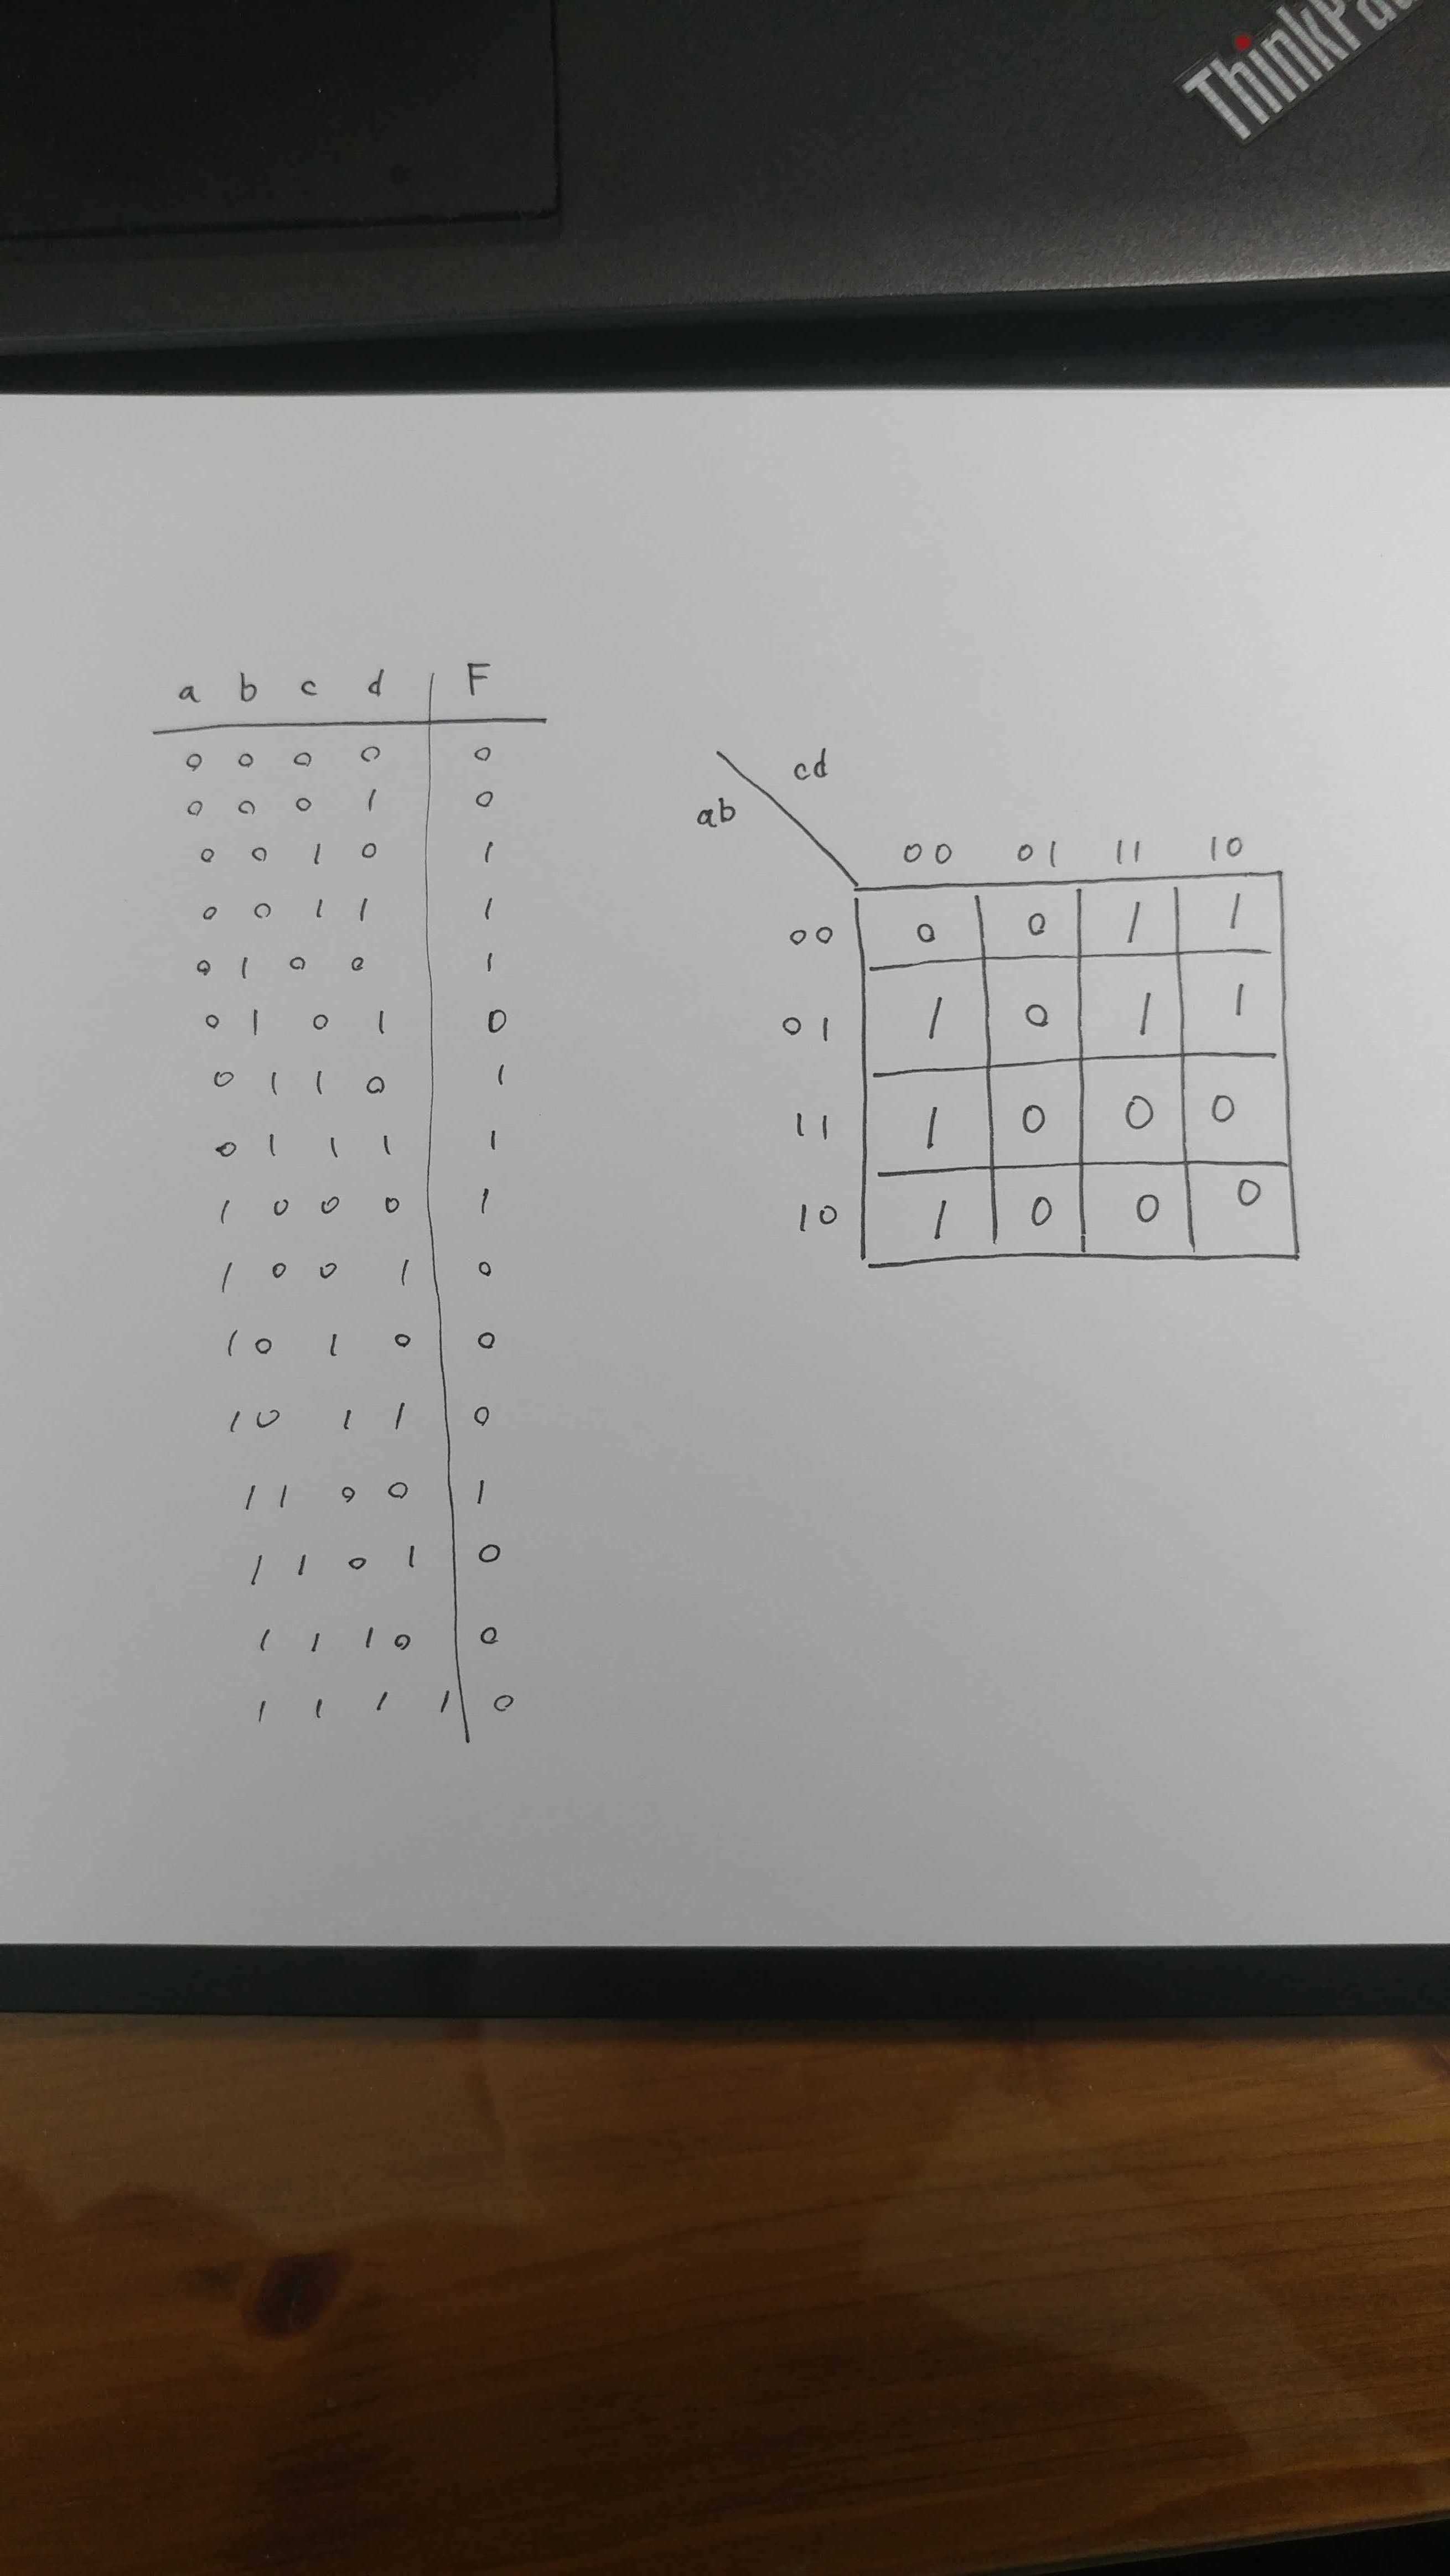 ThinkPad
a b c d F
0 0 0 0 0
0 0 0 1 0
0 0 1 0 1
0 0 1 1 1
0 1 0 0 1
0 1 0 1 0
0 1 1 0 1
0 1 1 1 1
1 0 0 0 1
1 0 0 1 0
1 0 1 0 0
1 0 1 1 0
1 1 0 0 1
1 1 0 1 0
1 1 1 0 0
1 1 1 1 0
cd
ab
00 01 11 10
00 0 0 1 1
01 1 0 1 1
11 1 0 0 0
10 1 0 0 0